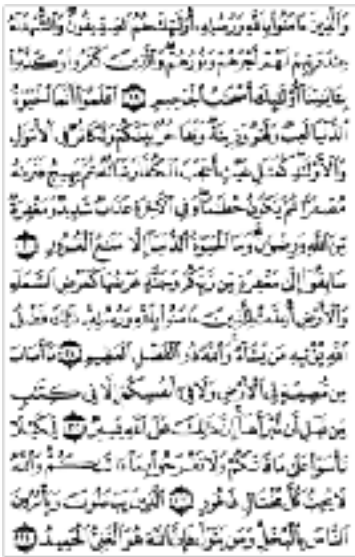 وَالَّذِينَ ءَامَنُوا بِاللَّهِ وَرُسُلِهِ أُولَٰئِكَ هُمُ الصِّدِّيقُونَ وَالشُّهَدَاءُ
عِندَ رَبِّهِمْ لَهُمْ أَجْرُهُمْ وَنُورُهُمْ وَالَّذِينَ كَفَرُوا وَكَذَّبُوا
بِـَٔايَٰتِنَا أُولَٰئِكَ أَصْحَٰبُ الْجَحِيمِ ١٩ اعْلَمُوا أَنَّمَا الْحَيَوٰةُ
الدُّنْيَا لَعِبٌ وَلَهْوٌ وَزِينَةٌ وَتَفَاخُرٌ بَيْنَكُمْ وَتَكَاثُرٌ فِي الْأَمْوَٰلِ
وَالْأَوْلَٰدِ كَمَثَلِ غَيْثٍ أَعْجَبَ الْكُفَّارَ نَبَاتُهُ ثُمَّ يَهِيجُ فَتَرَىٰهُ
مُصْفَرًّا ثُمَّ يَكُونُ حُطَٰمًا وَفِي الْءَاخِرَةِ عَذَابٌ شَدِيدٌ وَمَغْفِرَةٌ
مِّنَ اللَّهِ وَرِضْوَٰنٌ وَمَا الْحَيَوٰةُ الدُّنْيَا إِلَّا مَتَٰعُ الْغُرُورِ ٢٠
سَابِقُوا إِلَىٰ مَغْفِرَةٍ مِّن رَّبِّكُمْ وَجَنَّةٍ عَرْضُهَا كَعَرْضِ السَّمَاءِ
وَالْأَرْضِ أُعِدَّتْ لِلَّذِينَ ءَامَنُوا بِاللَّهِ وَرُسُلِهِ ذَٰلِكَ فَضْلُ
اللَّهِ يُؤْتِيهِ مَن يَشَاءُ وَاللَّهُ ذُو الْفَضْلِ الْعَظِيمِ ٢١ مَا أَصَابَ
مِن مُّصِيبَةٍ فِي الْأَرْضِ وَلَا فِي أَنفُسِكُمْ إِلَّا فِي كِتَٰبٍ
مِّن قَبْلِ أَن نَّبْرَأَهَا إِنَّ ذَٰلِكَ عَلَى اللَّهِ يَسِيرٌ ٢٢ لِّكَيْلَا
تَأْسَوْا عَلَىٰ مَا فَاتَكُمْ وَلَا تَفْرَحُوا بِمَا ءَاتَىٰكُمْ وَاللَّهُ
لَا يُحِبُّ كُلَّ مُخْتَالٍ فَخُورٍ ٢٣ الَّذِينَ يَبْخَلُونَ وَيَأْمُرُونَ
النَّاسَ بِالْبُخْلِ وَمَن يَتَوَلَّ فَإِنَّ اللَّهَ هُوَ الْغَنِيُّ الْحَمِيدُ ٢٤